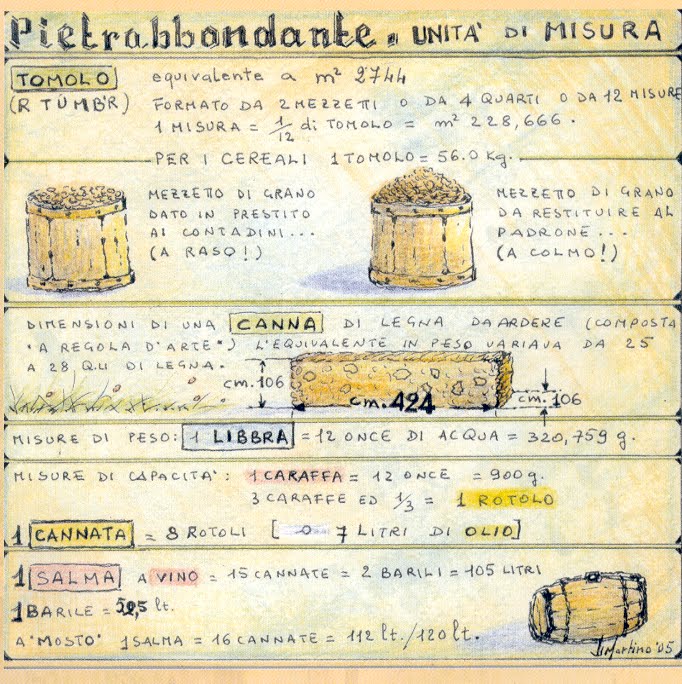 Pietrabbondante. UNITA' DI MISURA
TOMOLO equivalente a m² 2744
(R TÙMB'R) FORMATO DA 2 MEZZETTI O DA 4 QUARTI O DA 12 MISURE
1 MISURA = 1/12 di TOMOLO = m² 228,666.
PER I CEREALI 1 TOMOLO = 56.0 Kg.
MEZZETTO DI GRANO
DATO IN PRESTITO
AI CONTADINI...
(A RASO!)
MEZZETTO DI GRANO
DA RESTITUIRE AL
PADRONE...
(A COLMO!)
DIMENSIONI DI UNA CANNA DI LEGNA DA ARDERE (COMPOSTA
"A REGOLA D'ARTE") L'EQUIVALENTE IN PESO VARIAVA DA 25
A 28 Q.LI DI LEGNA.
cm. 106
cm. 424
cm. 106
MISURE DI PESO: 1 LIBBRA = 12 ONCE DI ACQUA = 320,759 g.
MISURE DI CAPACITA': 1 CARAFFA = 12 ONCE = 900 g.
3 CARAFFE ED 1/3 = 1 ROTOLO
1 CANNATA = 8 ROTOLI [ o 7 LITRI DI OLIO]
1 SALMA A VINO = 15 CANNATE = 2 BARILI = 105 LITRI
1 BARILE = 52,5 lt.
A "MOSTO" 1 SALMA = 16 CANNATE = 112 lt./120 lt.
DiMartino '05